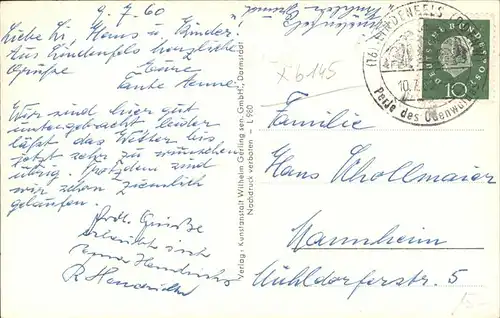 9. 7. 60
Liebe Li, Hans u. Kinder!
Aus Lindenfels herzliche
Grüße Eure
Tante Aenne.
Wir sind hier gut
untergebracht leider
läßt das Wetter bis
jetzt sehr zu wünschen
übrig. Trotzdem sind
wir schon ziemlich
gelaufen.
Grüße
erlaubt sich
Hendrichs
R Hendrichs
Verlag: Kunstanstalt Wilhelm Gerling sen. GmbH., Darmstadt
Nachdruck verboten L 980
X b 145
(16) LINDENFELS
10.7.
Perle des Odenwaldes
DEUTSCHE BUNDESPOST
10
Familie
Hans Schollmaier
Mannheim
Mühldorferstr. 5